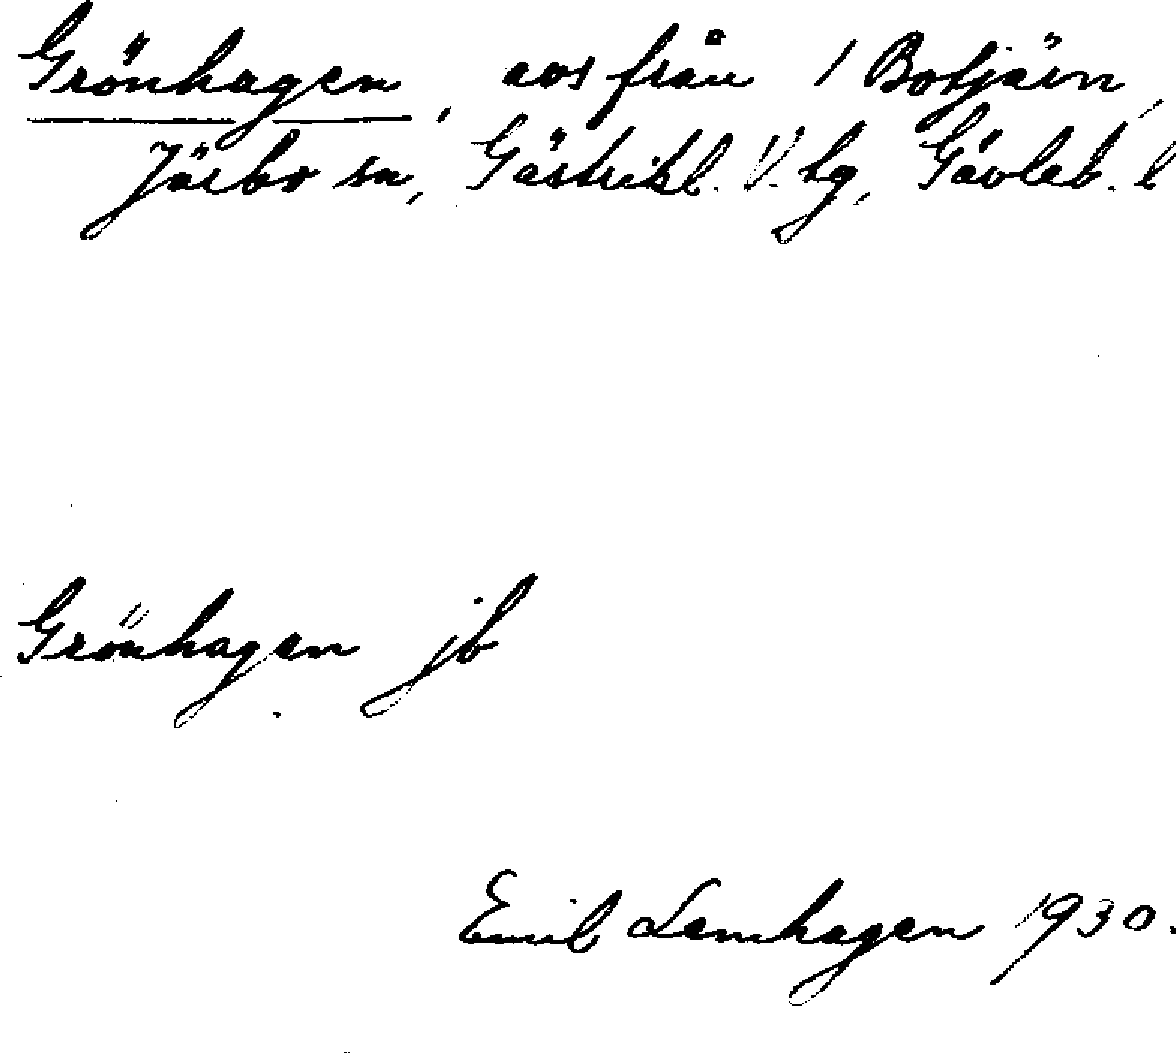 Grönhagen, avs från 1 Botjärn,
Järbo sn, Gästrikl. V. tg, Gävleb. l
Grönhagen jb
Emil Lamhagen 1930.